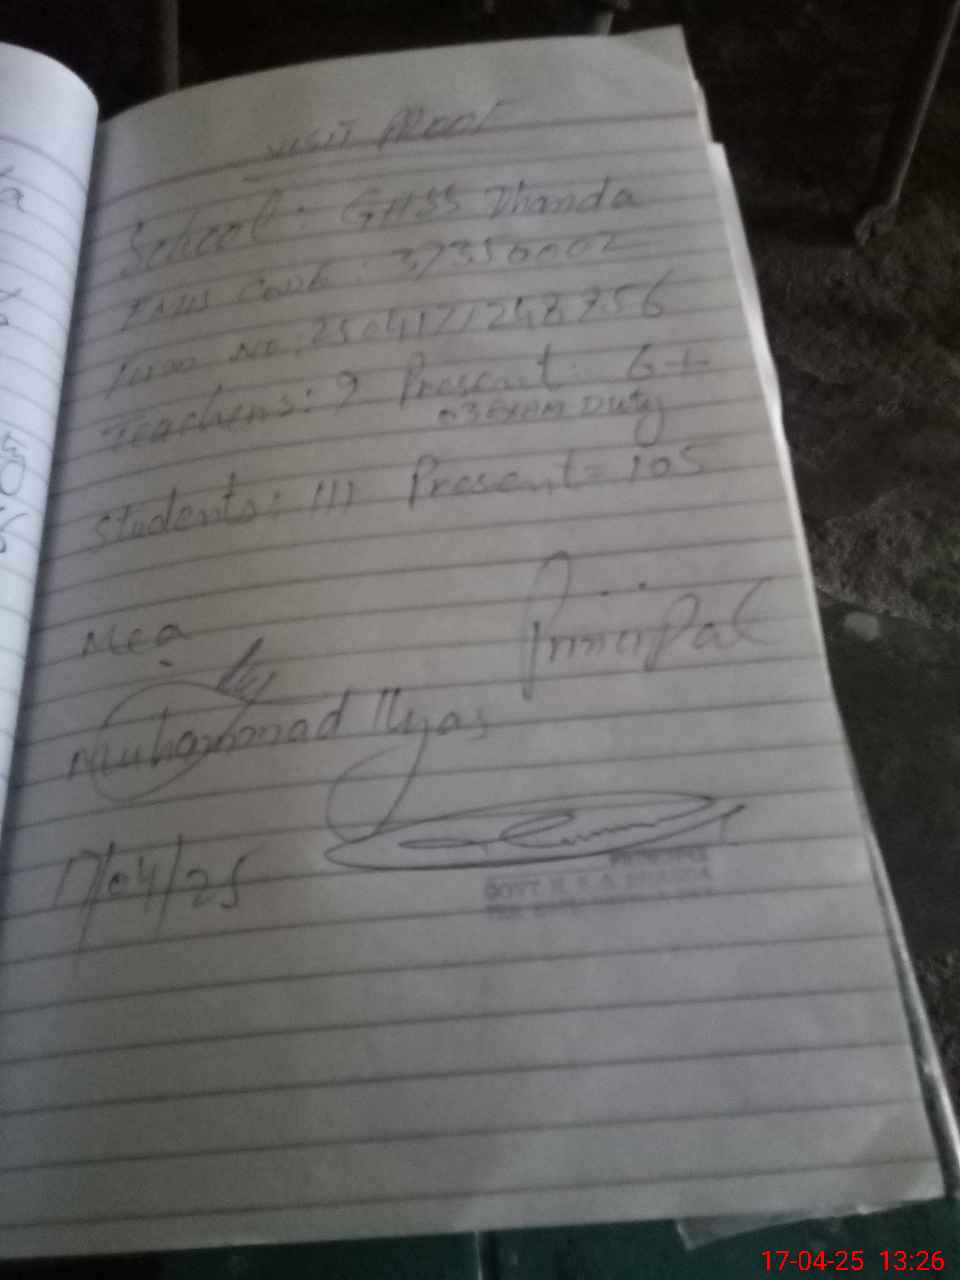 VISIT PROOF
School: GHSS Dhanda
EMIS Code: 37350002
No: 2504171248756
Teachers: 9 Present: 6+
03 Exam Duty
Students: 111 Present = 105
Mea
Principal
Muhammad Ilyas
17/04/25
PRINCIPAL
GOVT. H. S. S.
17-04-25 13:26